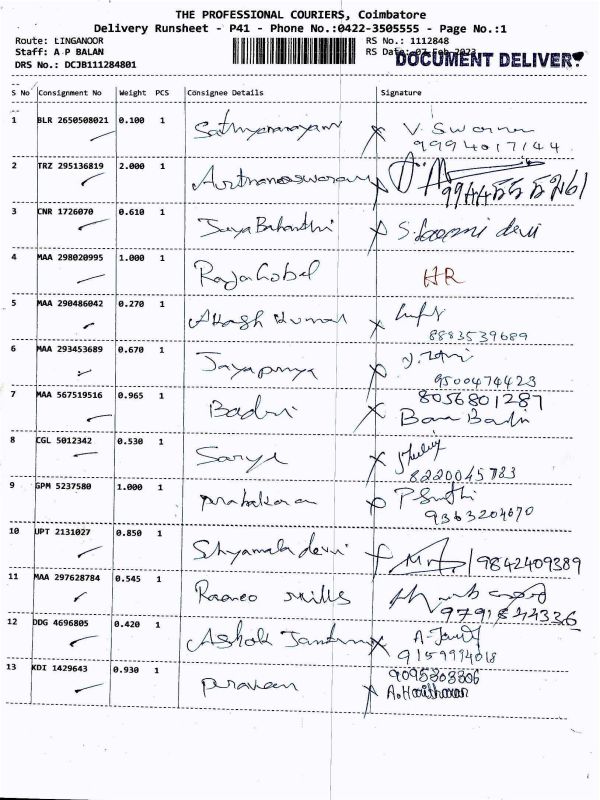 THE PROFESSIONAL COURIERS, Coimbatore
Delivery Runsheet - P41 - Phone No.:0422-3505555 - Page No.:1
Route: LINGANOOR RS No.: 1112848
Staff: A P BALAN RS Date: 07 Feb 2023
DOCUMENT DELIVER
DRS No.: DCJB111284801
S No Consignment No Weight PCS Consignee Details Signature
1 BLR 2650508021 0.100 1 Sathyanarayanan V. Swarna
9994017144
2 TRZ 295136819 2.000 1 9944555261
3 CNR 1726070 0.610 1 Jaya Bharathi S. devi
4 MAA 298020995 1.000 1 RajaGobal HR
5 MAA 290486042 0.270 1 Akash Kumar
8883539689
6 MAA 293453689 0.670 1 Jayapriya
9500474423
7 MAA 567519516 0.965 1 Badri 8056801287
Badri
8 CGL 5012342 0.530 1 Sarya
8220045783
9 GPM 5237580 1.000 1 prabakaran P Smithi
9363204070
10 UPT 2131027 0.850 1 Shyamala devi 9842409389
11 MAA 297628784 0.545 1 Rameo Mills
9791844336
12 DDG 4696805 0.420 1 Ashok
9159994018
13 KDI 1429643 0.930 1 praveen 9095303306
A. Haritharan